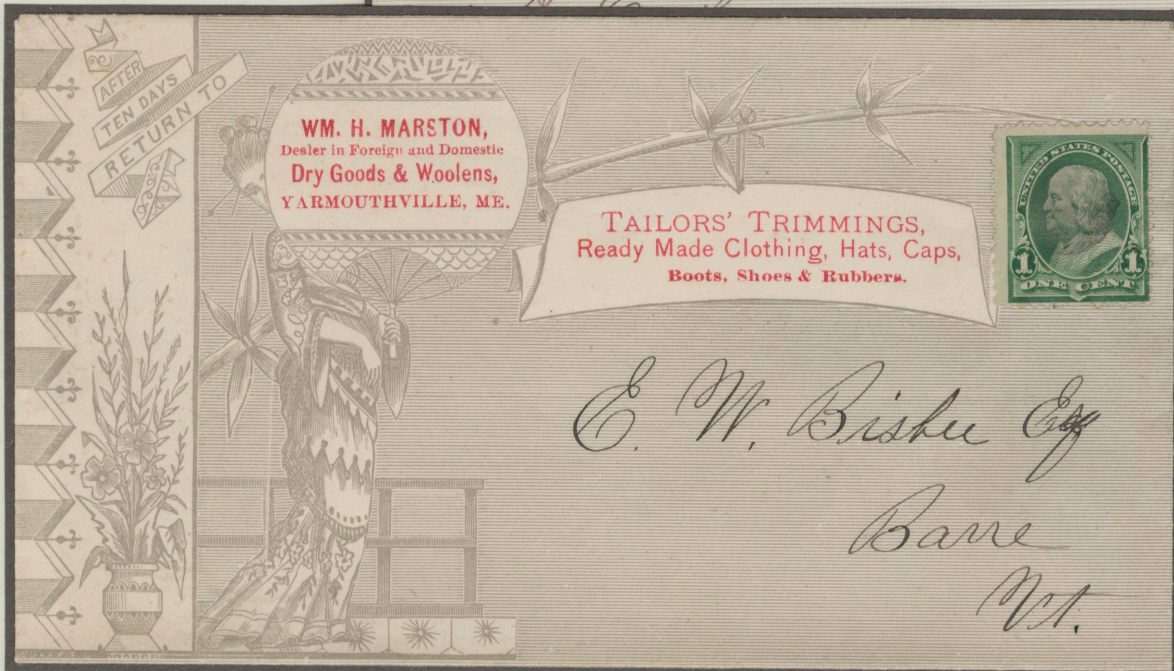 AFTER
TEN DAYS
RETURN TO
WM. H. MARSTON,
Dealer in Foreign and Domestic
Dry Goods & Woolens,
YARMOUTHVILLE, ME.
TAILORS' TRIMMINGS,
Ready Made Clothing, Hats, Caps,
Boots, Shoes & Rubbers.
UNITED STATES POSTAGE
1 1
ONE CENT
E. W. Bisbee Esq
Barre
Vt.